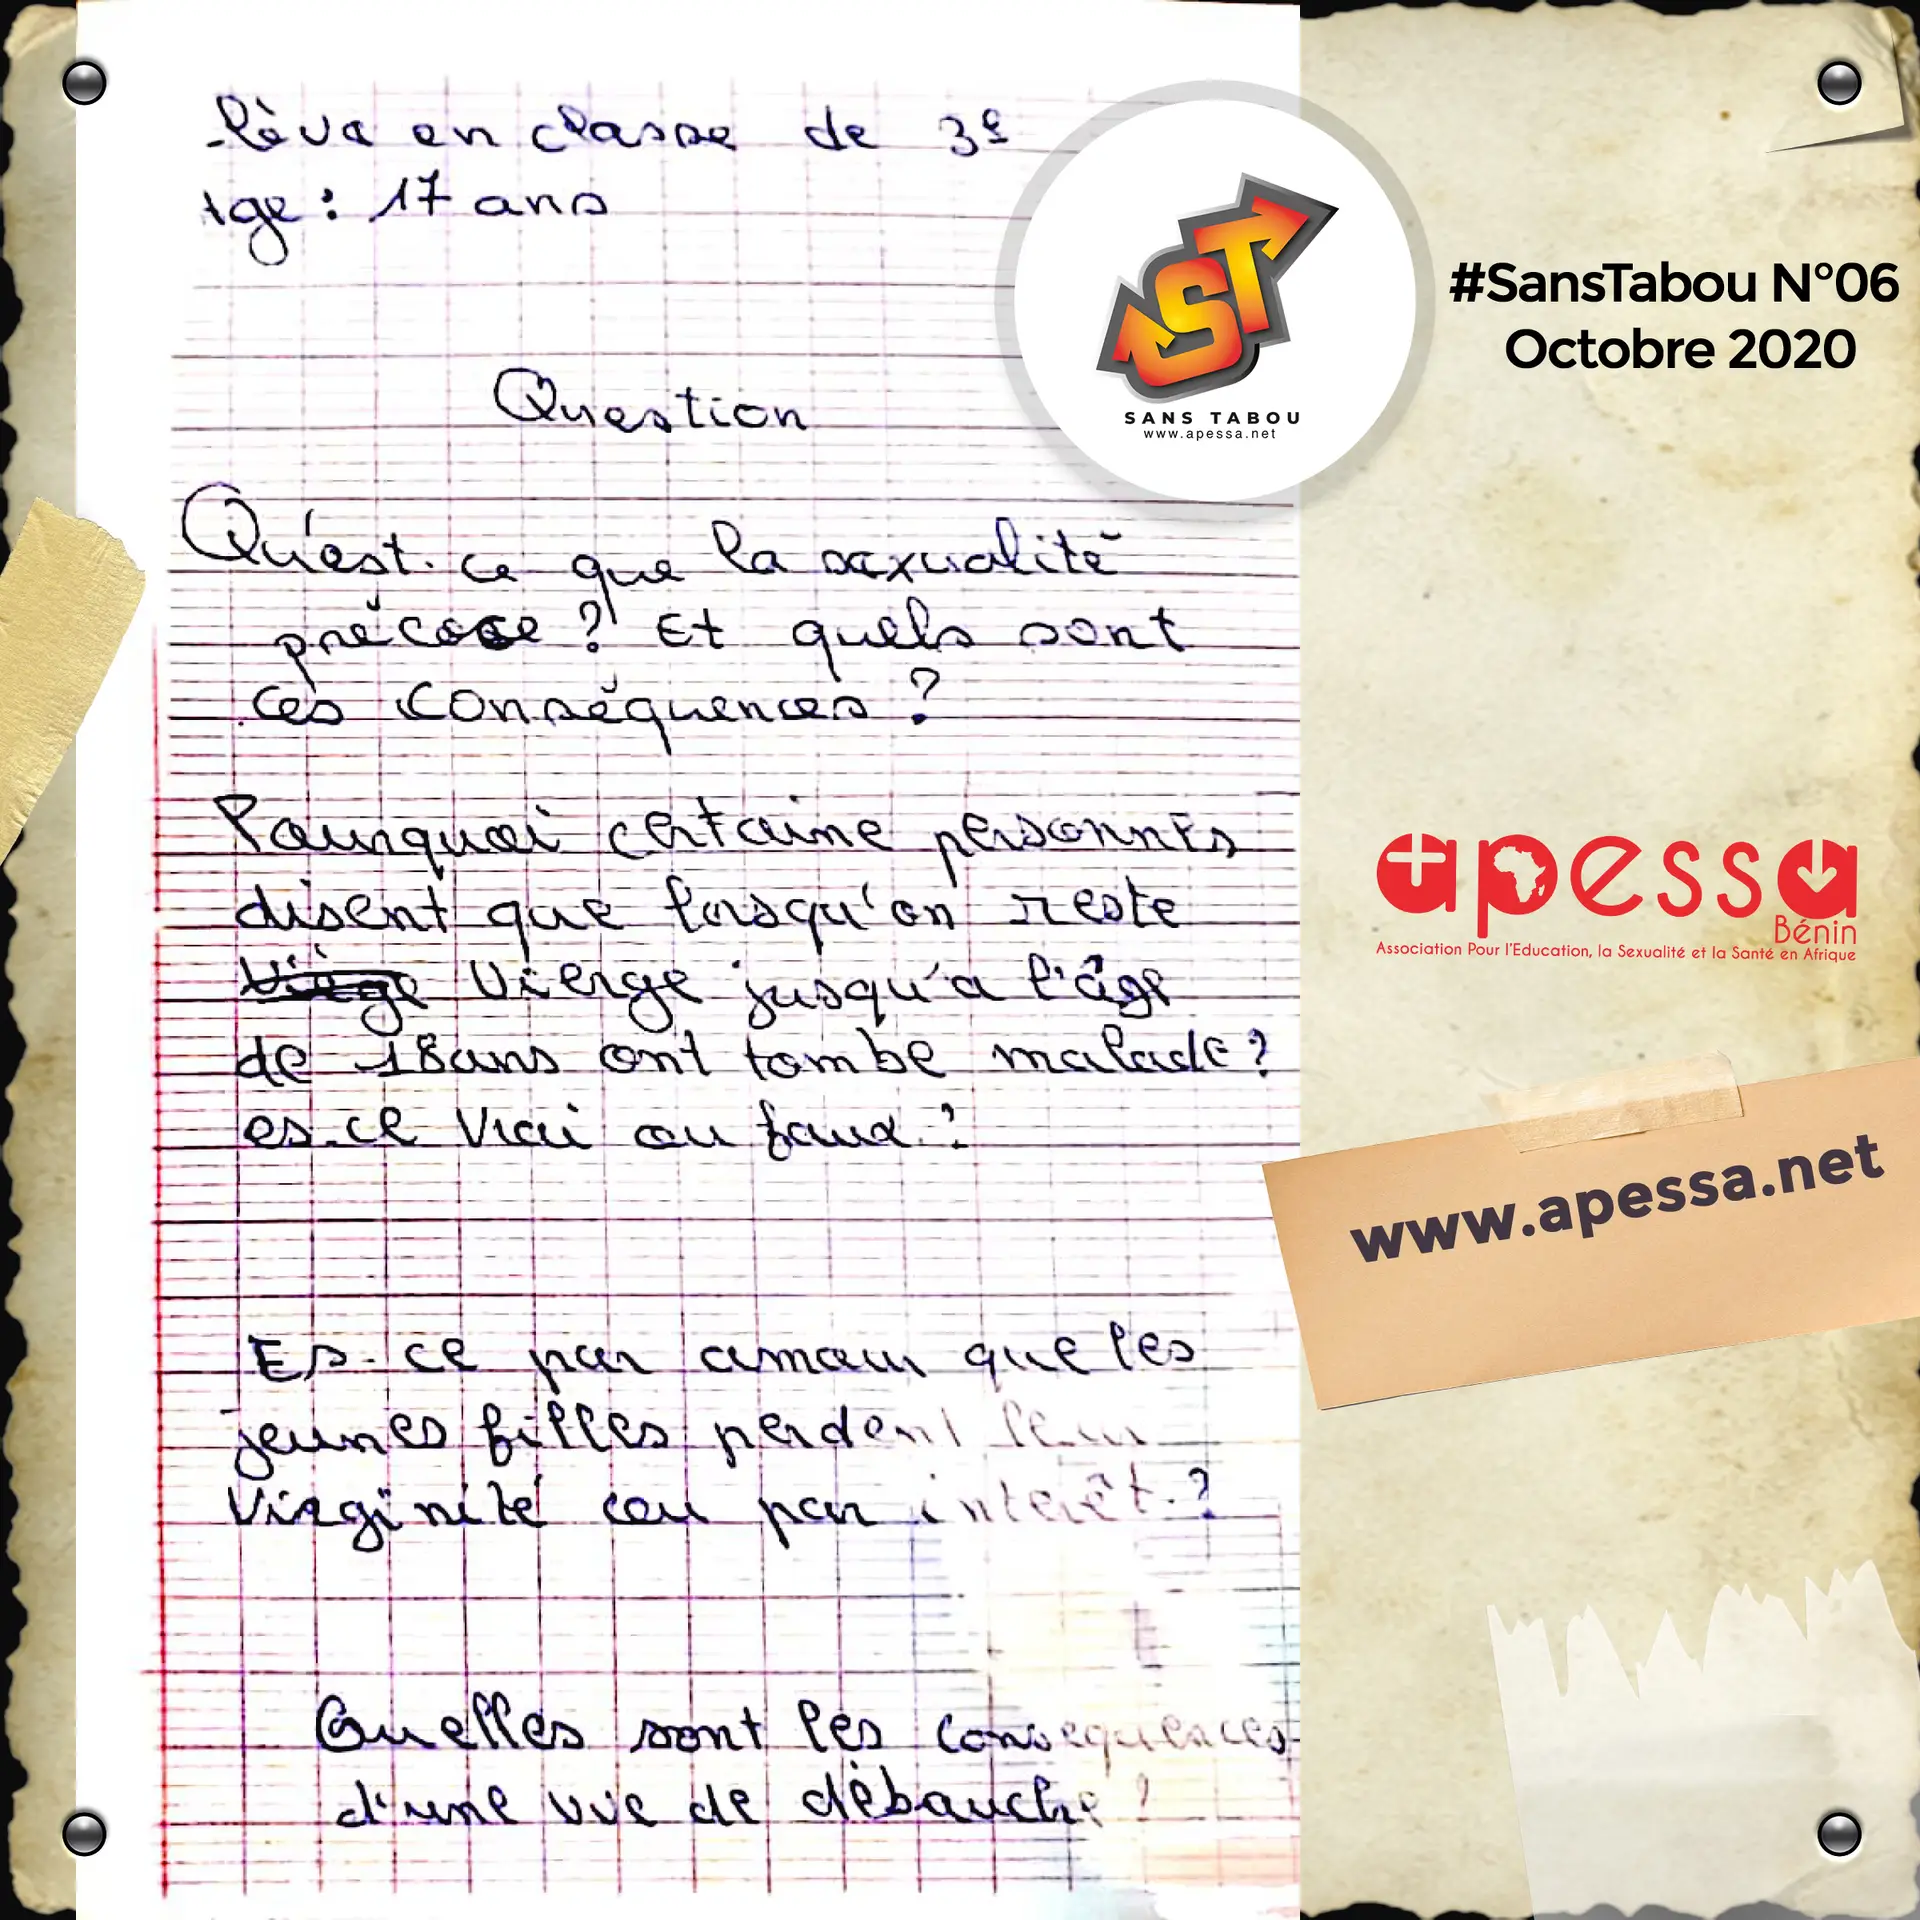 lève en classe de 3e
ge : 17 ans
Question
Qu'est-ce que la sexualité
précoce ? Et quels sont
ces conséquences ?
Pourquoi certaine personnes
disent que lorsqu'on reste
Vierge jusqu'a l'âge
de 18ans ont tombe malade ?
es-ce Vrai ou faux ?
Es-ce par amour que les
jeunes filles perdent leur
virginité ou par intérêt ?
Quelles sont les consequences
d'une vie de débauche ?
ST
SANS TABOU
www.apessa.net
#SansTabou N°06
Octobre 2020
apessa
Bénin
Association Pour l'Education, la Sexualité et la Santé en Afrique
www.apessa.net